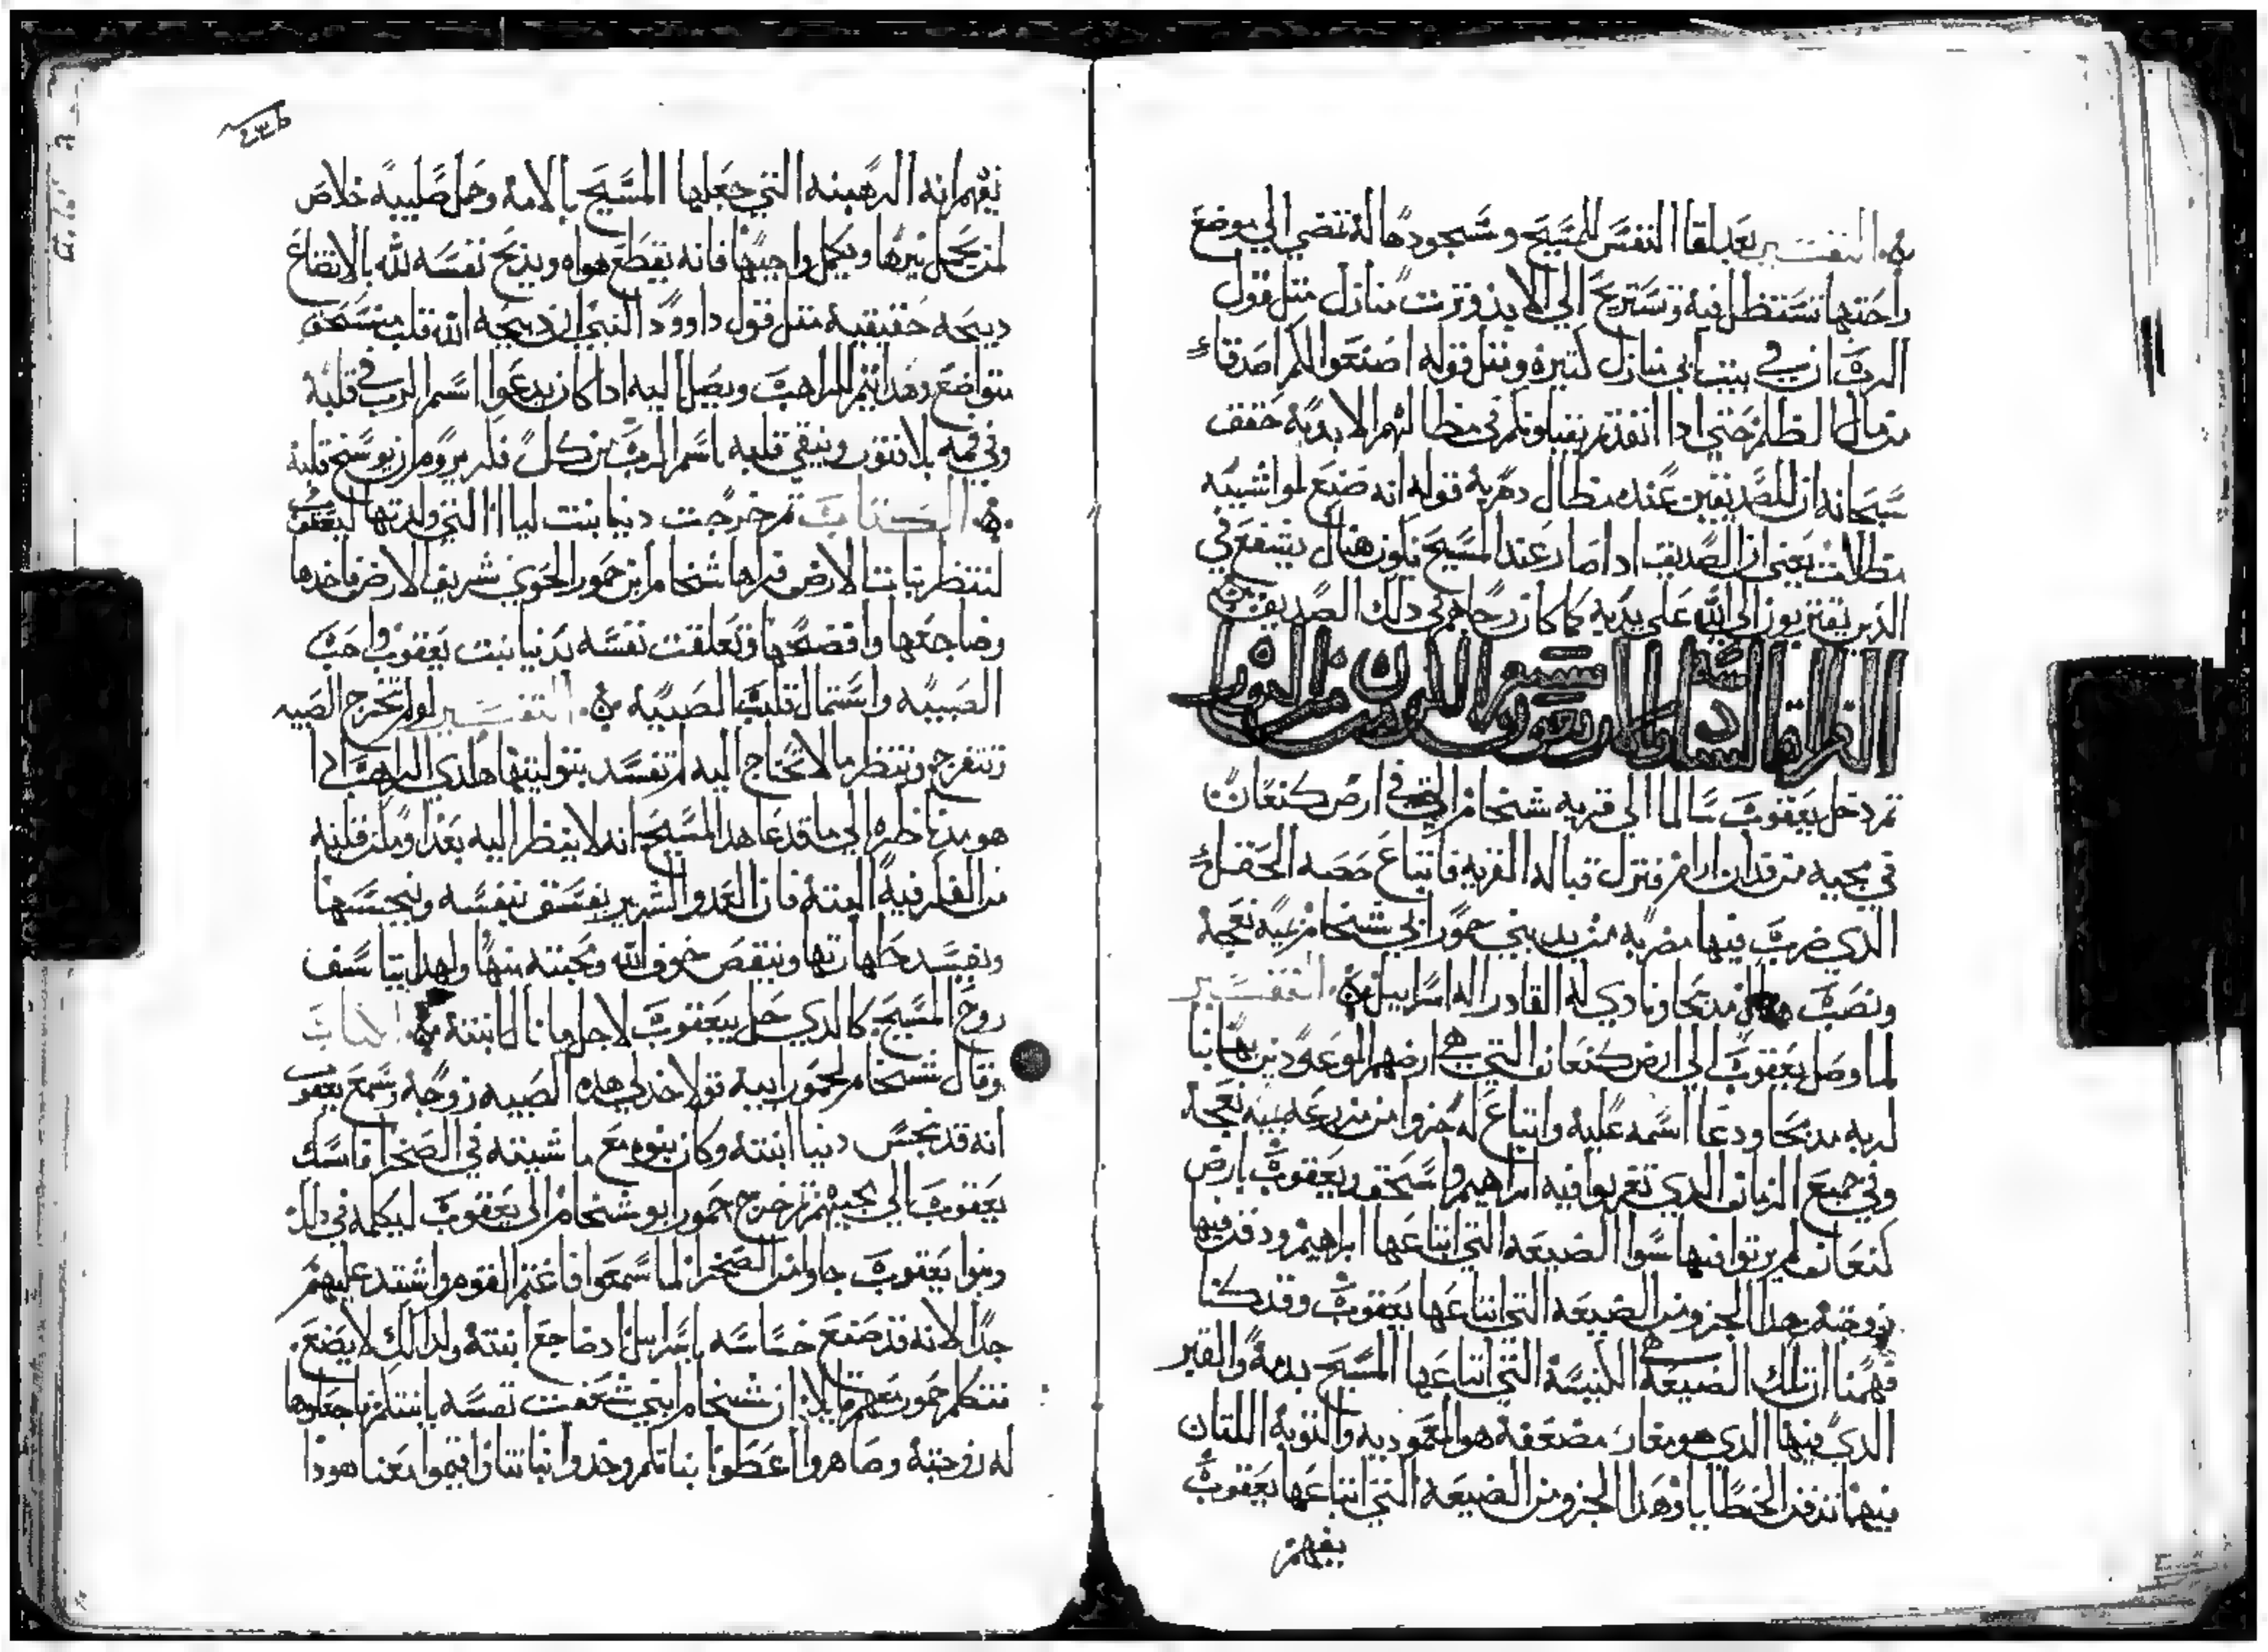 التفسير بعد لقا النفس للمسيح وسجودها له تمضي الي موضع
راحتها تستظل فيه وتستريح الي الابد وترت منازل متل قول
الرب ان في بيت ابي منازل كتيره ومتل قوله اصنعوا لكم اصدقاء
من مال الظلم حتي ادا انفدتم يقبلونكم في مظالهم الابدية حقق
سبحانه ان للصديقين عنده مظال دهرية قوله انه صنع لمواشيه
مظلات يعني ان الصديق ادا صار عند المسيح يكون هناك يشفع في
الدين يقتربون الي الله علي يديه كما كان رجاهم في دلك الصديق
ثم دخل يعقوب سالما الي قريه شخام التي في ارض كنعان
في مجيه من فدان ارام فنزل قباله القريه فابتاع حصه الحقل
الدي ضرب فيها مضربه من يد بني حمور ابي شخام بمية نعجة
ونصب هناك مدبحا ونادي له القادر اله اسراييل التفسير
لما وصل يعقوب الي ارض كنعان التي هي ارضهم الموعودين بها بنا
لربه مدبحا ودعا اسمه عليه وابتاع له جزوا من مزرعه بميه نعجه
وفي جميع الزمان الدي تغربوا فيه ابراهيم واسحق ويعقوب بارض
كنعان لم يرتوا فيها سوا الضيعه التي ابتاعها ابراهيم ودفن فيها
زوجته وهدا الجزو من الضيعه التي ابتاعها يعقوب وقد كنا
فهمنا ان تلك الضيعة هي الكنيسة التي ابتاعها المسيح بدمه والقبر
الدي فيها الدي هو مغاره مضعفه هو المعموديه والتوبة اللتان
فيهما تندفن الخطايا وهدا الجزو من الضيعه التي ابتاعها يعقوب
يفهم
يفهم انه الرهبنه التي جعلها المسيح بالامه وحمل صليبه خلاص
لمن يحمل نيرها ويكمل واجبها فانه يقطع هواه ويدبح نفسه لله بالاتضاع
دبيحه حقيقيه متل قول داوود النبي ان دبيحه الله قلب منسحق
متواضع وهدا يتم للراهب ويصل اليه ادا كان يدعوا اسم الرب في قلبه
وفي فمه بلا فتور وينقي قلبه باسم الرب من كل فكر
الكتاب تم خرجت دينا بنت ليا التي ولدتها ليعقوب
لتنظر بنات الارض فراها شخام ابن حمور الحوي شريف الارض فاخدها
وضاجعها وافضحها وتعلقت نفسه بدينا بنت يعقوب واحب
الصبيه واستمال قلب الصبية التفسير لو لم تخرج الصبيه
تتفرج وتنظر ما لا تحتاج اليه لم تفسد بتوليتها هكدي الراهب ادا
هو مد ناظره الي ما قد عاهد المسيح انه لا ينظر اليه بعد ومكن قلبه
من الفكر فيه البتة فان العدو الشرير يفسق بنفسه وينجسها
ويفسد طهارتها وينقص خوف الله ومحبته منها ولهدا يتاسف
روح المسيح كالدي حل بيعقوب لاجل ما نال ابنته الكتاب
وقال شخام لحمور ابيه تولا خد لي هده الصبيه زوجه وسمع يعقوب
انه قد نجس دينا ابنته وكان بنوه مع ماشيته في الصحرا فامسك
يعقوب الي مجيهم تم خرج حمور ابو شخام الي يعقوب ليكلمه في دلك
وبنوا يعقوب جاوا من الصحرا لما سمعوا فاغتم القوم واشتد عليهم
جدا لانه قد صنع خساسه باسراييل اد ضاجع ابنته ولدلك لا يصنع
فتكلم حمور معهم قايلا ان شخام ابني شغفت نفسه بابنتكم فاجعلوها
له زوجته وصاهروا اعطونا بناتكم وخدوا بناتنا واقيموا معنا هودا